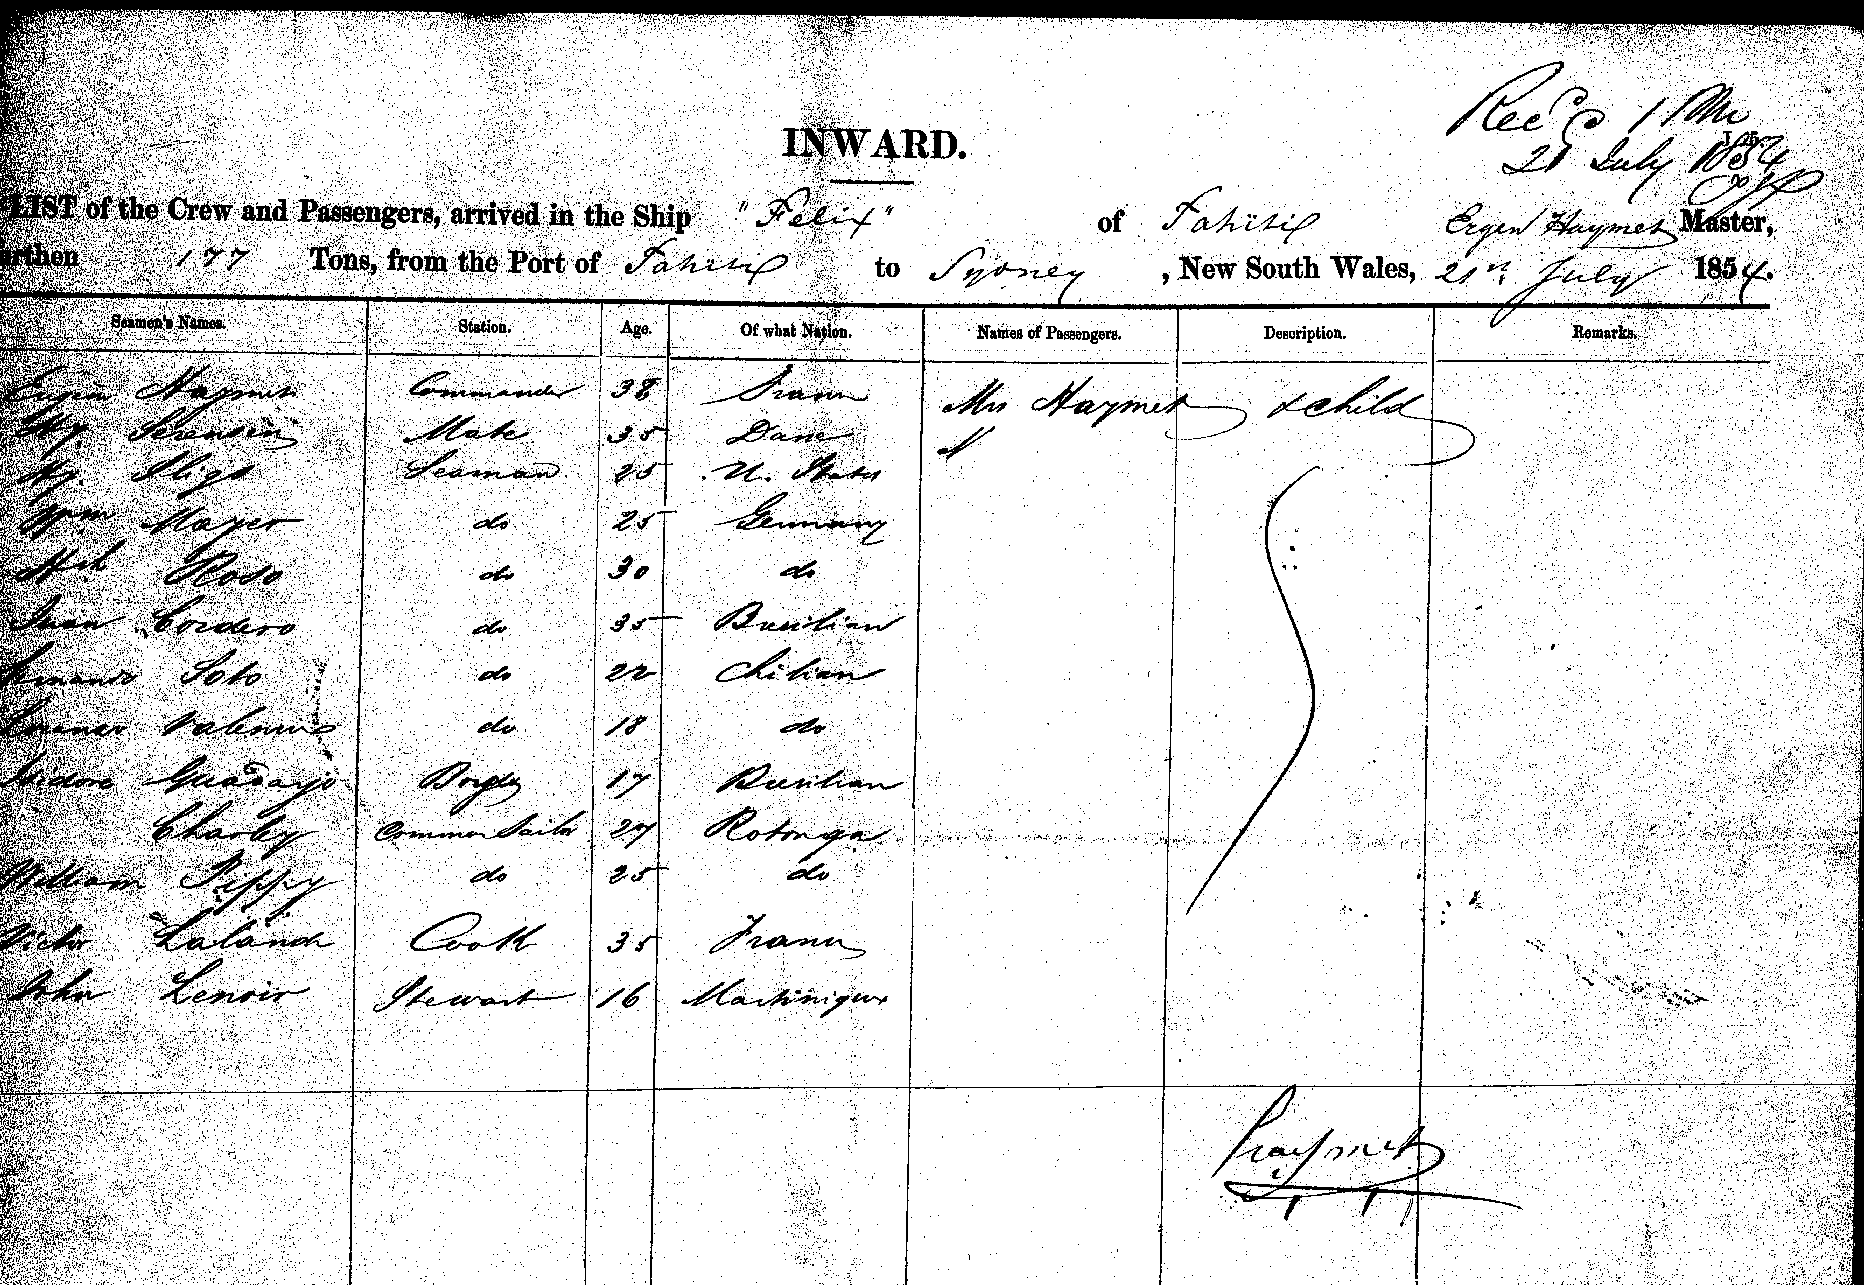 Rec 1 PM
21 July 1854
INWARD.
LIST of the Crew and Passengers, arrived in the Ship "Felix" of Tahiti Ergin Haymet Master,
urthen 177 Tons, from the Port of Tahiti to Sydney, New South Wales, 21st July 1854.
Seamen's Names. Station. Age. Of what Nation. Names of Passengers. Description. Remarks.
Ergin Haymet Commander 38 France Mrs Haymet & child
Hy Serensen Mate 35 Dane
Hy. Sligo Seaman 25 U. States
Wm Mayer do 25 Germany
Hch Rodo do 30 do
Juan Cordero do 35 Bresilian
Soto do 22 Chilian
do 18 do
Isidore Guadayo 17 Bresilian
Charley Common Sailor 27 Rotonga
William Peppy do 25 do
Victor Lalande Cook 35 France
John Lenoir Stewart 16 Martinique
Haymet